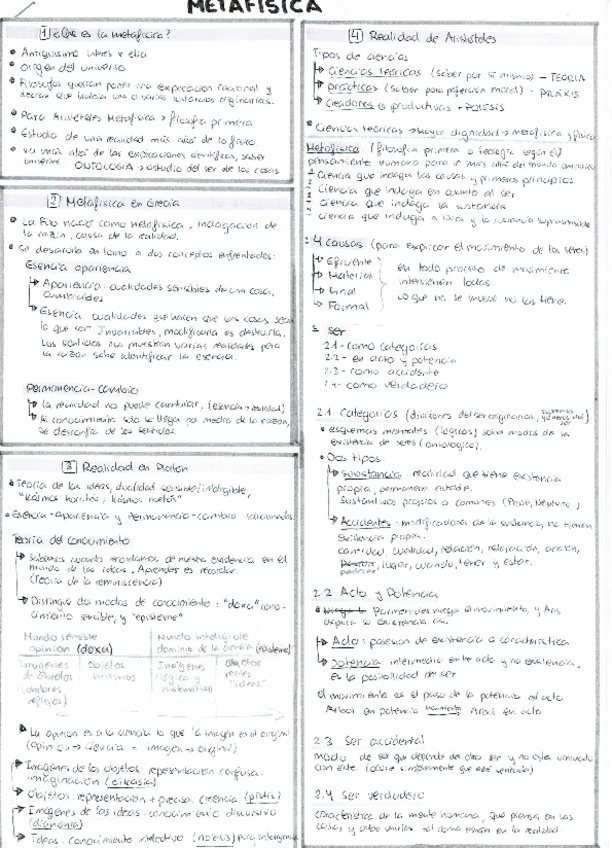 METAFÍSICA
1 ¿Qué es la metafísica?
• Antiquísimo interés x ella
• Origen del universo
• Filósofos querían poner una explicación racional y
decían que había una o varias sustancias originarias.
• Para Aristóteles Metafísica → filosofía primera
• Estudio de una realidad más allá de lo físico.
• va más allá de las explicaciones científicas, saber
universal ONTOLOGÍA → estudio del ser de las cosas
2 Metafísica en Grecia
• La Filo nació como Metafísica. Indagación de
la razón, causa de la realidad.
• Se desarrolla en torno a dos conceptos enfrentados:
Esencia apariencia
↳ Apariencia: cualidades sensibles de una cosa.
Cambiables
↳ Esencia cualidades que hacen que las cosas sean
lo que son. Invariables, modificarla es destruirla.
Los sentidos nos muestran varias realidades pero
la razón sabe identificar la esencia.
Permanencia-Cambio
↳ la realidad no puede cambiar, (esencia → realidad)
↳ Al conocimiento solo se llega por medio de la razón,
se desconfía de los sentidos.
3 Realidad en Platón
• Teoría de las ideas, dualidad sensible/inteligible,
"Kósmos horatós, kósmos noetós"
• Esencia-apariencia y Permanencia-cambio relacionados
Teoría del Conocimiento
↳ Sabemos cuando recordamos de nuestra existencia en el
mundo de las ideas. Aprender es recordar.
(Teoría de la reminiscencia)
↳ Distinguió dos modos de conocimiento: "doxa" cono-
cimiento sensible, y "episteme"
Mundo sensible
opinión (doxa)
Mundo inteligible
dominio de la ciencia (episteme)
Imágenes
de objetos
(sombras
reflejos)
Objetos
mismos
Imágenes
lógica y
matemática
objetos
reales
"ideas"
↳ La opinión es a la ciencia lo que la imagen es al original
(opinión → ciencia = imagen → original)
Imágenes de los objetos, representación confusa.
imaginación (eikasía)
Objetos: representación + precisa. creencia (pistis)
Imágenes de las ideas: conocimiento discursivo
(diánoia)
Ideas: conocimiento intelectivo (noûs)
4 Realidad de Aristóteles
Tipos de ciencias
↳ Ciencias teóricas (saber por sí mismo) - TEORÍA
↳ prácticas (saber para perfección moral) - PRAXIS
↳ Creadoras o productivas - POIESIS
• Ciencias teóricas → Mayor dignidad → metafísica y física
Metafísica (filosofía primera o teología según él)
pensamiento humano para ir más allá del mundo
Ciencia que indaga las causas y primeros principios
Ciencia que indaga en cuanto al ser
Ciencia que indaga la sustancia
Ciencia que indaga a Dios y la sustancia suprasensible
4 causas (para explicar el movimiento de los seres)
↳ Eficiente
↳ Material
↳ Final
↳ Formal
en todo proceso de movimiento
intervienen todas
Lo que no se mueve no las tiene.
2. ser
2.1 - como categorías
2.2 - en acto y potencia
2.3 - como accidente
2.4 - como verdadero
2.1 Categorías (divisiones del ser originarias, supremos géneros del ser)
• esquemas mentales (lógicos) sobre modos de la
existencia de seres (ontológico).
• Dos tipos
↳ Substancia: realidad que tiene existencia
propia, permanece estable.
Sustantivos propios o comunes (Pepe, Neptuno)
↳ Accidentes: modificaciones de la sustancia, no tienen
existencia propia.
cantidad, cualidad, relación, acción,
padecer, lugar, cuando, tener y estar.
2.2 Acto y Potencia
• Parménides niega el movimiento, y Aris
↳ Acto: posesión de existencia o característica
↳ potencia: intermedio entre acto y no existencia,
es la posibilidad de ser
el movimiento es el paso de la potencia al acto
Árbol en potencia movimiento Árbol en acto
2.3 Ser accidental
Modo de ser que depende de otro ser y no está vinculado
con este.
2.4 Ser verdadero
característica de la mente humana, que piensa en las
cosas y sabe unirlas tal como están en la realidad.